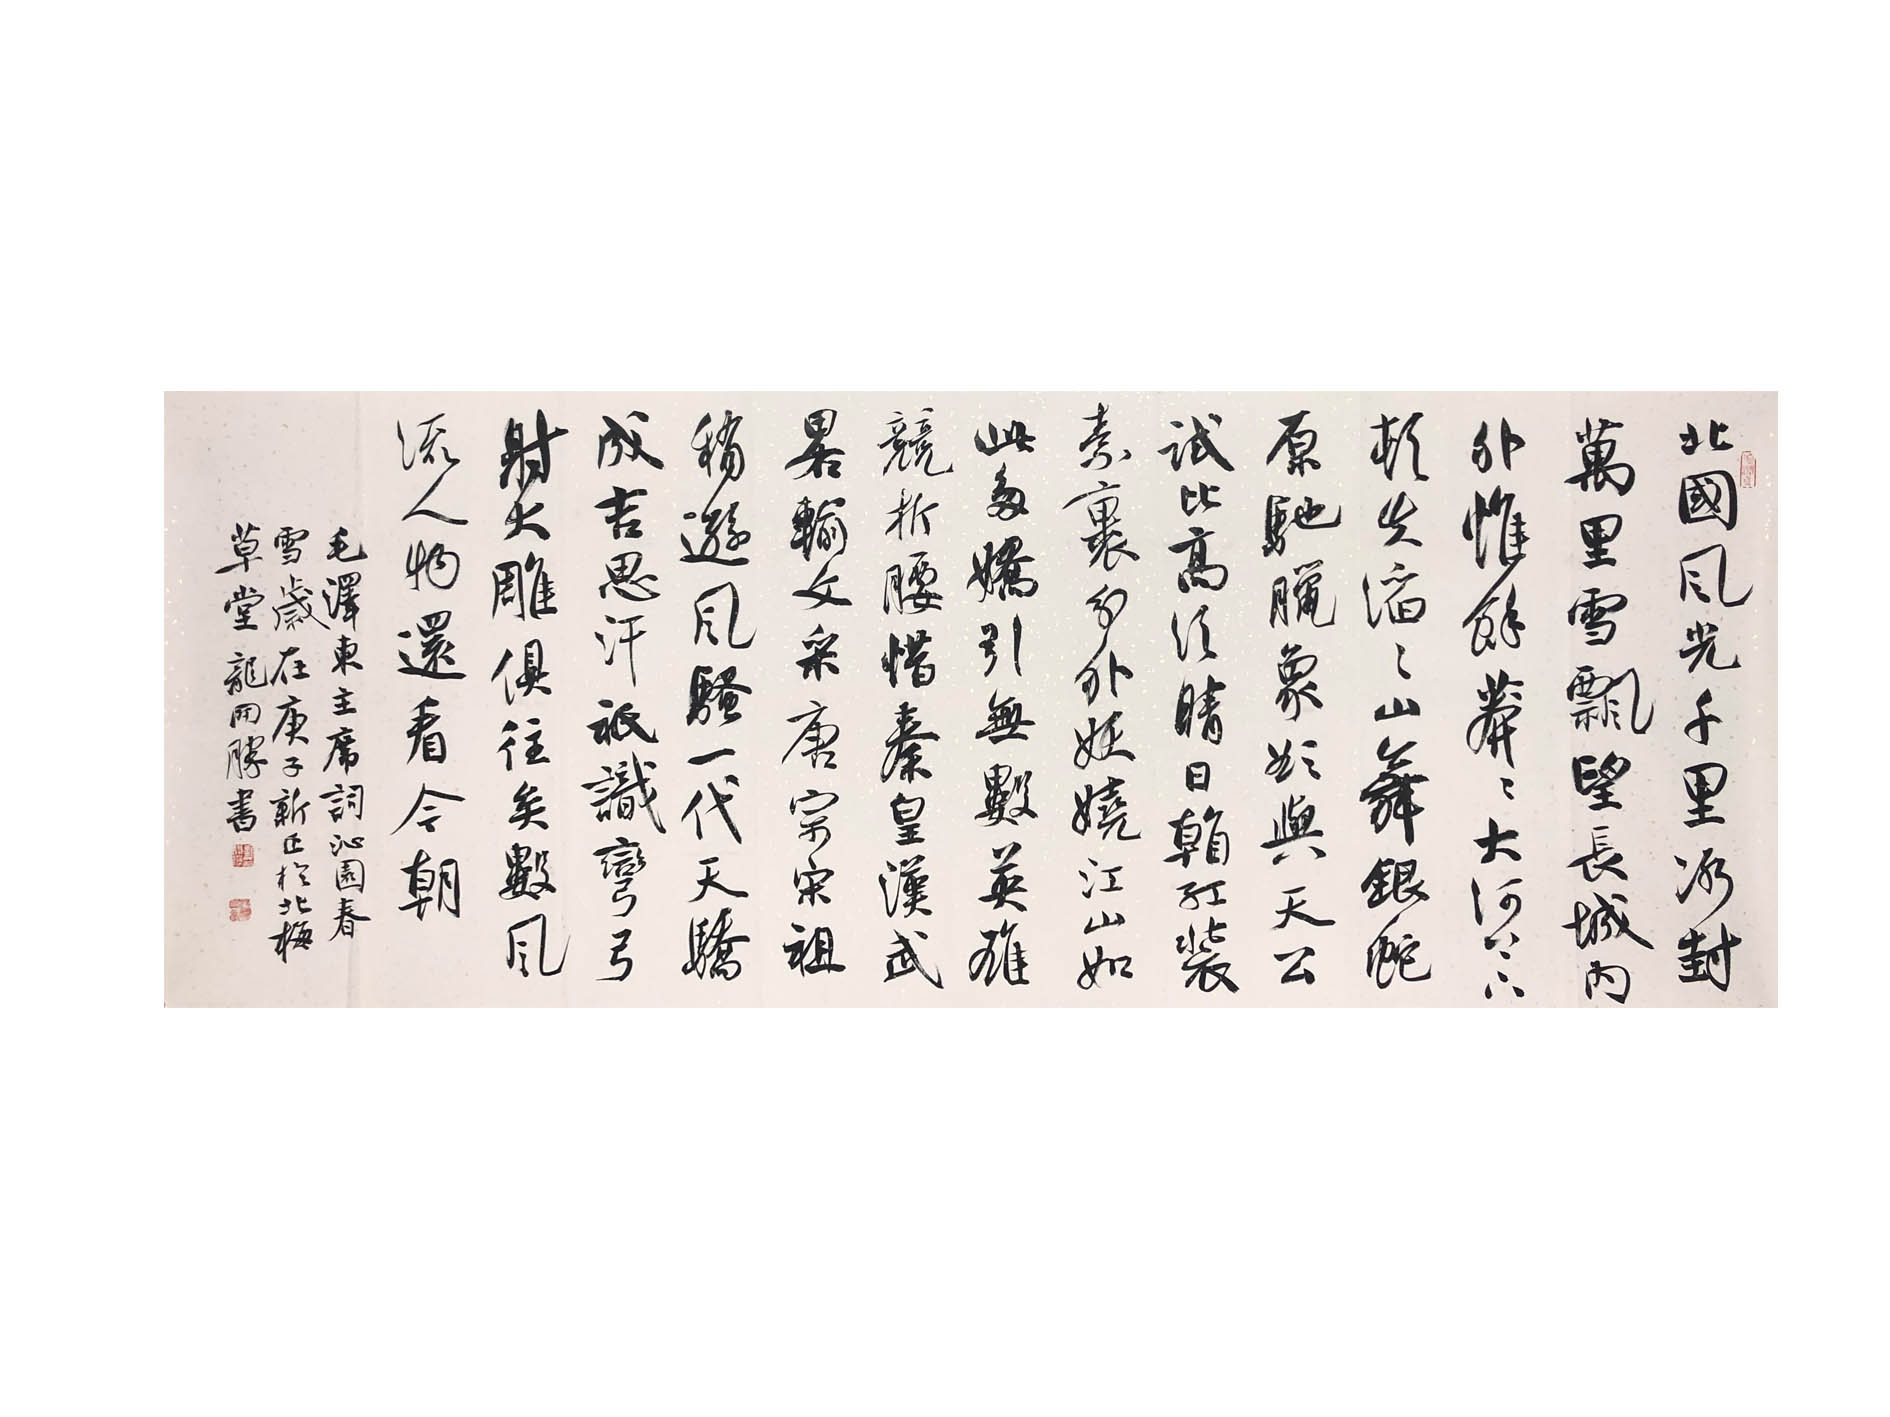 北國風光千里冰封
萬里雪飄望長城內
外惟餘莽〻大河上下
頓失滔〻山舞銀蛇
原馳臘象欲與天公
試比高須晴日看紅裝
素裹分外妖嬈江山如
此多嬌引無數英雄
競折腰惜秦皇漢武
畧輸文采唐宗宋祖
稍遜風騷一代天驕
成吉思汗祇識彎弓
射大雕俱往矣數風
流人物還看今朝
毛澤東主席詞沁園春
雪歲在庚子新正於北梅
草堂龍開勝書